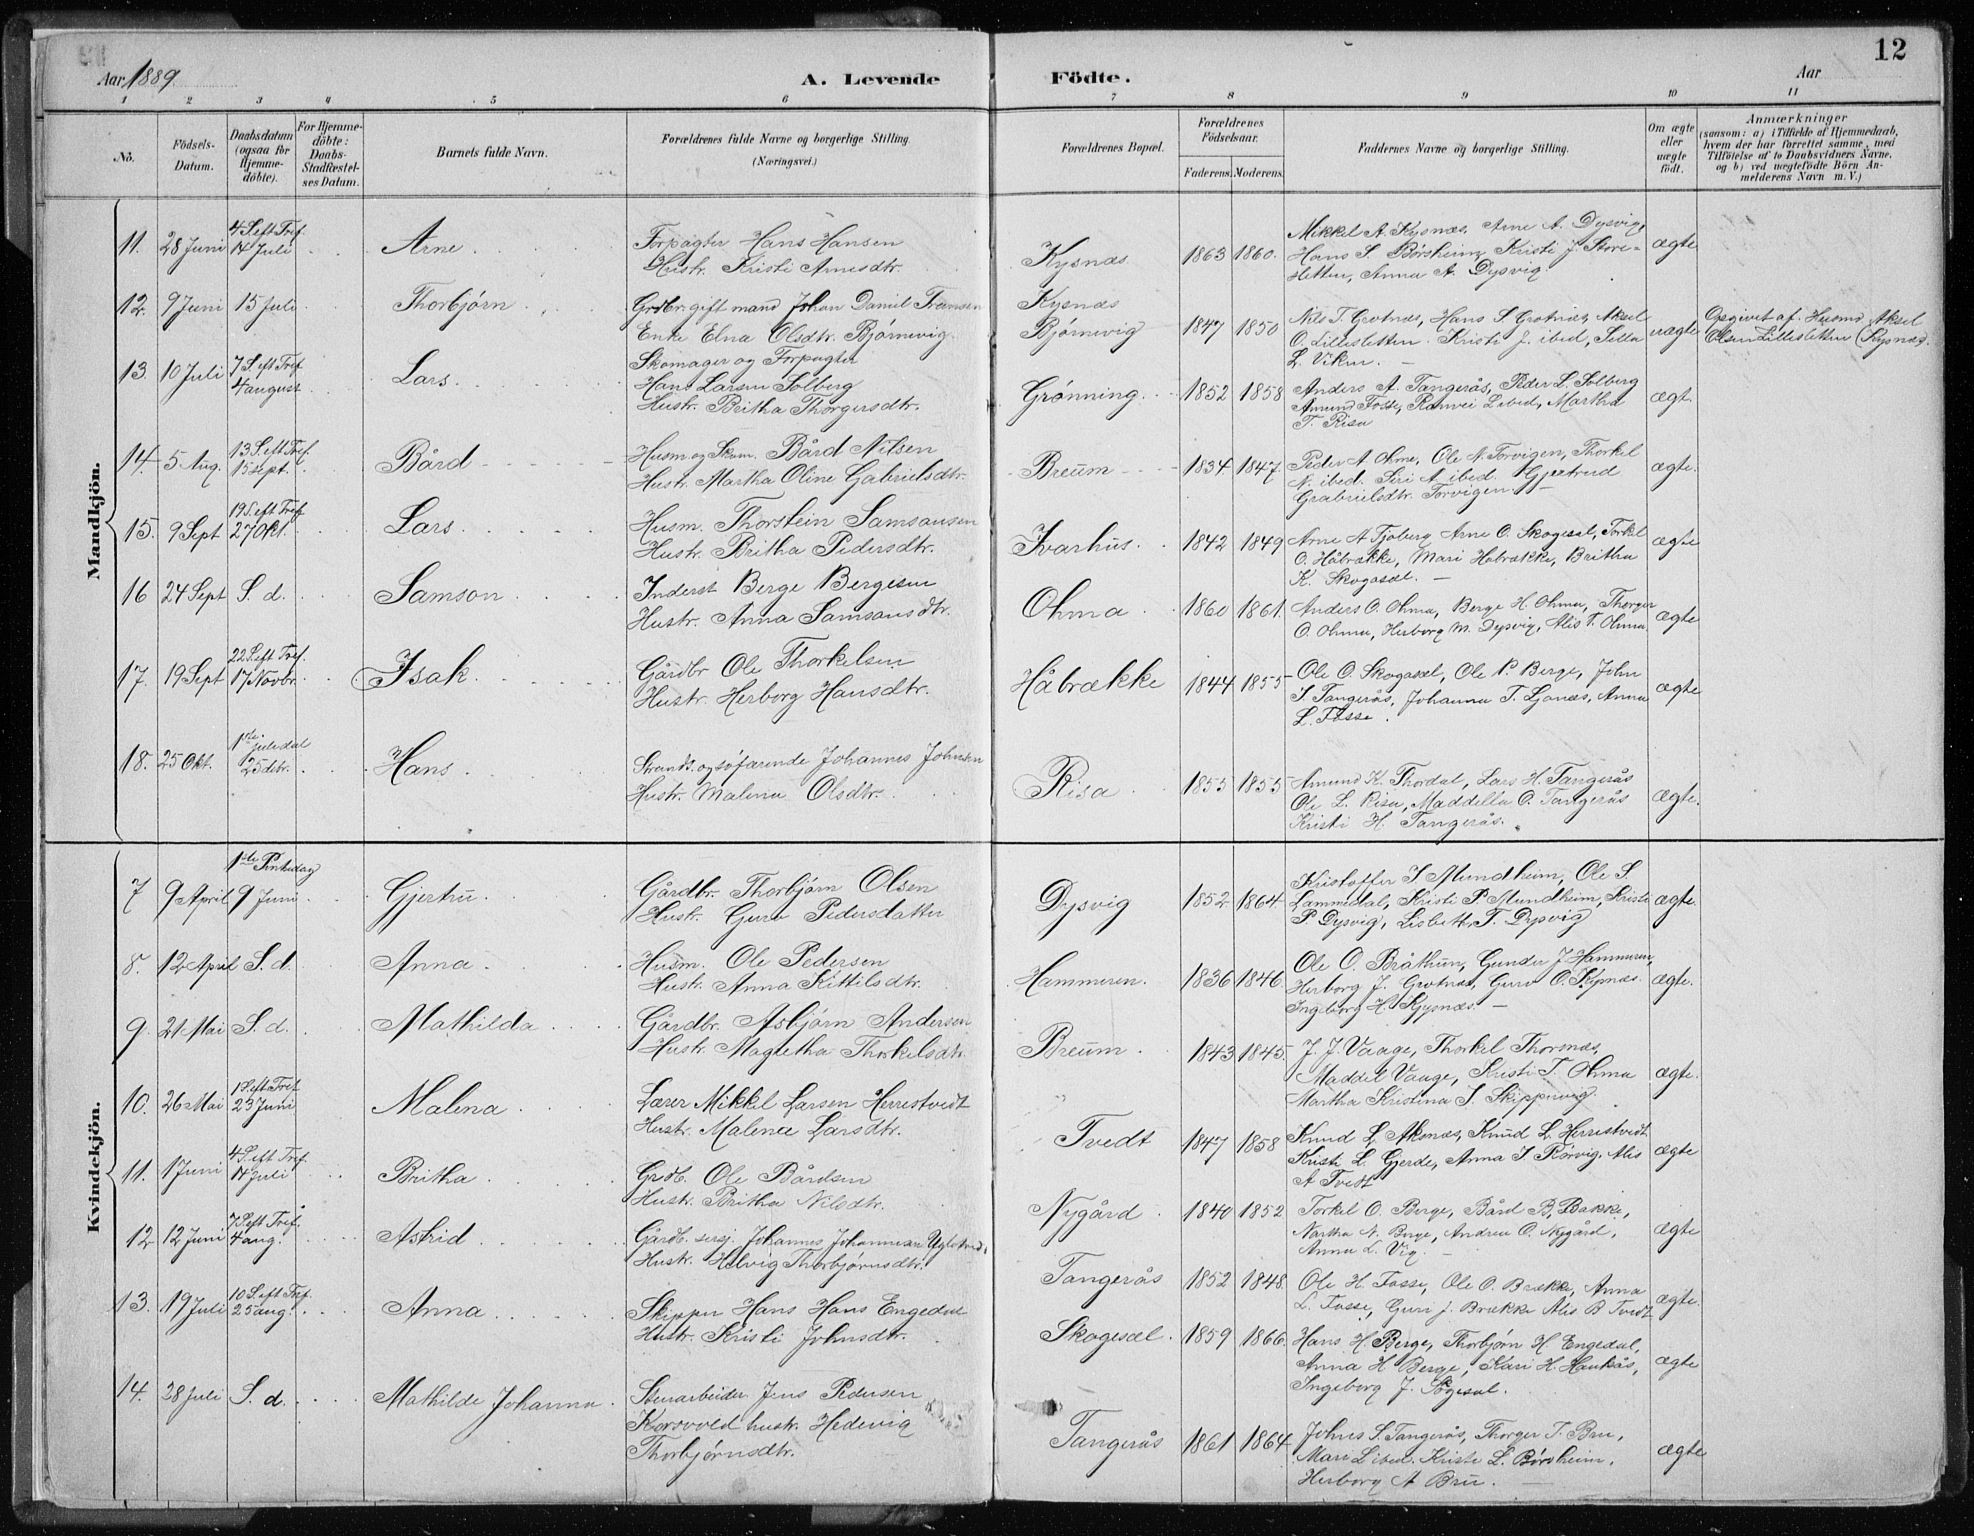 12
Aar 1889.
A. Levende
Födte.
Aar
1 2 3 4 5 6 7 8 9 10 11
No.
Födsels-
Datum.
Daabsdatum
(ogsaa for
Hjemme-
döbte).
For Hjemme-
döbte:
Daabs-
Stadfæstel-
ses Datum.
Barnets fulde Navn.
Forældrenes fulde Navne og borgerlige Stilling.
(Næringsvei.)
Forældrenes Bopæl.
Forældrenes
Födselsaar.
Faderens. Moderens.
Faddernes Navne og borgerlige Stilling.
Om ægte
eller
uægte
födt.
Anmærkninger
(saasom: a) i Tilfælde af Hjemmedaab,
hvem der har forrettet samme, med
Tilföielse af to Daabsvidners Navne,
og b) ved uægtefödte Börn An-
melderens Navn m. V.)
Mandkjön.
11. 28 Juni
4 S. eft Tref
14 Juli
Arne
Forpagter Hans Hansen
Hustr. Kristi Arnesdtr.
Kysnæs
1863 1860.
Mikkel A. Kysnæs, Arne A. Dysvig,
Hans S. Børsheim, Kristi J. Store-
sletten, Anna A. Dysvig
ægte
12. 9 Juni 15 Juli
Thorbjørn
Grdbr. gift mand Johan Daniel Fransen
Enke Elna Olsdtr. Bjørnevig
Kysnæs
Bjørnevig
1847 1850
Nils T. Grotnæs, Hans S Grotnæs, Aksel
O. Lillesletten. Kristi J. ibed, Sella
L. Viken.
uægte
Opgivet af Husmd Aksel
Olsen Lillesletten (Kysnæs).
13. 10 Juli
7 S. eft Tref
4 august
Lars
Skomager og Forpagter
Hans Larsen Solberg
Hustr. Britha Thorgersdtr.
Grønning
1852 1858
Anders A. Tangerås, Peder L. Solberg
Amund Fosse, Ranvei L ibed, Martha
T. Risa
ægt.
14. 5 Aug.
13 S. eft Tref.
15 sept.
Bård
Husm. og Skom. Bård Nilsen
Hustr. Martha Oline Gabrielsdtr.
Breum
1834 1847.
Peder A. Ohme, Ole N. Torvigen, Thorkel
N. ibed. Siri A ibed. Gjertrud
Grabrielsdtr. Torvigen.
ægte.
15. 9 Sept
19 S. eft Tref
27 Okt.
Lars
Husm. Thorstein Samsonsen
Hustr. Britha Pedersdtr.
Ivarhus
1842 1849
Arne A Tjoberg, Arne O. Skogesæl, Torkel
O. Håbrække, Mari Håbrække, Britha
K. Skogasæl.
ægte
16 24 Sept S. d.
Samson
Inderst Berge Bergesen
Hustr. Anna Samsonsdtr.
Ohma
1860 1861.
Anders O. Ohma, Berge H. Ohma, Thorger
O. Ohma, Herborg M. Dysvig, Alis T. Ohma
ægte
17. 19 Sept
22 S. eft Tref.
17 Novbr.
Isak
Gårdbr Ole Thorkelsen
Hustr. Herborg Hansdtr.
Håbrække
1844 1855
Ole O. Skogasæl, Ole P. Berge, John
S. Tangerås, Johanna T. Ljonæs, Anna
L. Fosse.
ægte
18. 25 Okt.
1ste juledal
25 dcbr.
Hans
Strands. og søfarende Johannes Johnsen
Hustr. Malena Olsdtr.
Risa
1855 1855
Amund K. Thordal, Lars H. Tangerås
Ole L. Risa, Maddella O. Tangerås
Kristi H. Tangerås.
Ægte.
Kvindekjön.
7 9 April
1ste Pintsedag
9 Juni
Gjertru
Gårdbr. Thorbjørn Olsen
Hustr. Guro Pedersdatter
Dysvig
1852 1864
Kristoffer S Mundheim, Ole S.
Lammedal, Kristi P. Mundheim, Kristi
P. Dysvig, Lisbeth T. Dysvig
ægte.
8. 12 April S. d.
Anna
Husm. Ole Pedersen
Hustr. Anna Kittilsdtr.
Hammeren.
1836 1846
Ole O. Bråthun, Gunder J Hammeren,
Herborg J. Grotnæs, Guro O. Kysnæs.
Ingeborg H. Kysnæs.
ægte.
9. 21 Mai S. d.
Mathilda
Gårdbr. Asbjørn Andersen
Hustr. Magretha Thorkelsdtr.
Breum
1843 1845.
J. J. Vaage, Thorkel Thorsnæs,
Maddel Vaage, Kristi T. Ohma
Martha Kristina J. Skippervig.
ægte.
10. 26 Mai
1 S. eft Tref
23 Juni
Malena
Lærer Mikkel Larsen Herrestvedt
Hustr. Malena Larsdtr.
Tvedt
1847 1858
Knud L. Aksnæs, Knud L. Herrestvedt
Kristi L. Gjerde, Anna J. Rörvig, Alis
A Tvedt
ægte
11. 1 Juni
4 S. eft Tref.
14 Juli
Britha
Grdb. Ole Bårdsen
Hustr. Britha Nilsdtr.
Nygård
1840 1852
Torkel O. Berge, Bård B. Bakke,
Martha N. Berge, Andrea O. Nygård,
Anna L. Vig.
ægte
12 12 Juni
7 S. eft Tref.
4 aug.
Astrid
Gårdb. sersj. Johannes Johannesen
Hustr. Helvig Thorbjørnsdtr.
Tangerås
1852 1848.
Ole H. Fosse, Ole O. Brække, Anna
L. Fosse, Guri J. Brække Alis B Tvedt
ægte.
13. 19 Juli
10 S. eft Tref.
25 aug.
Anna
Skipper Hans Hans Engedal
Hustr. Kristi Johnsdtr.
Skogesæl
1859 1866
Hans H. Berge, Thorbjørn H. Engedal,
Anna H Berge, Kari H. Haukås,
Ingeborg J.
ægte
14. 28 Juli S. d.
Mathilde Johanna
Stenarbeider Jens Pedersen
Korsvold hustr. Hedevig
Thorbjørnsdtr.
Tangerås
1861 1864
Johns S. Tangerås, Thorger T. Bru,
Mari L ibed. Kristi L. Børsheim,
Herborg A Bru.
ægte